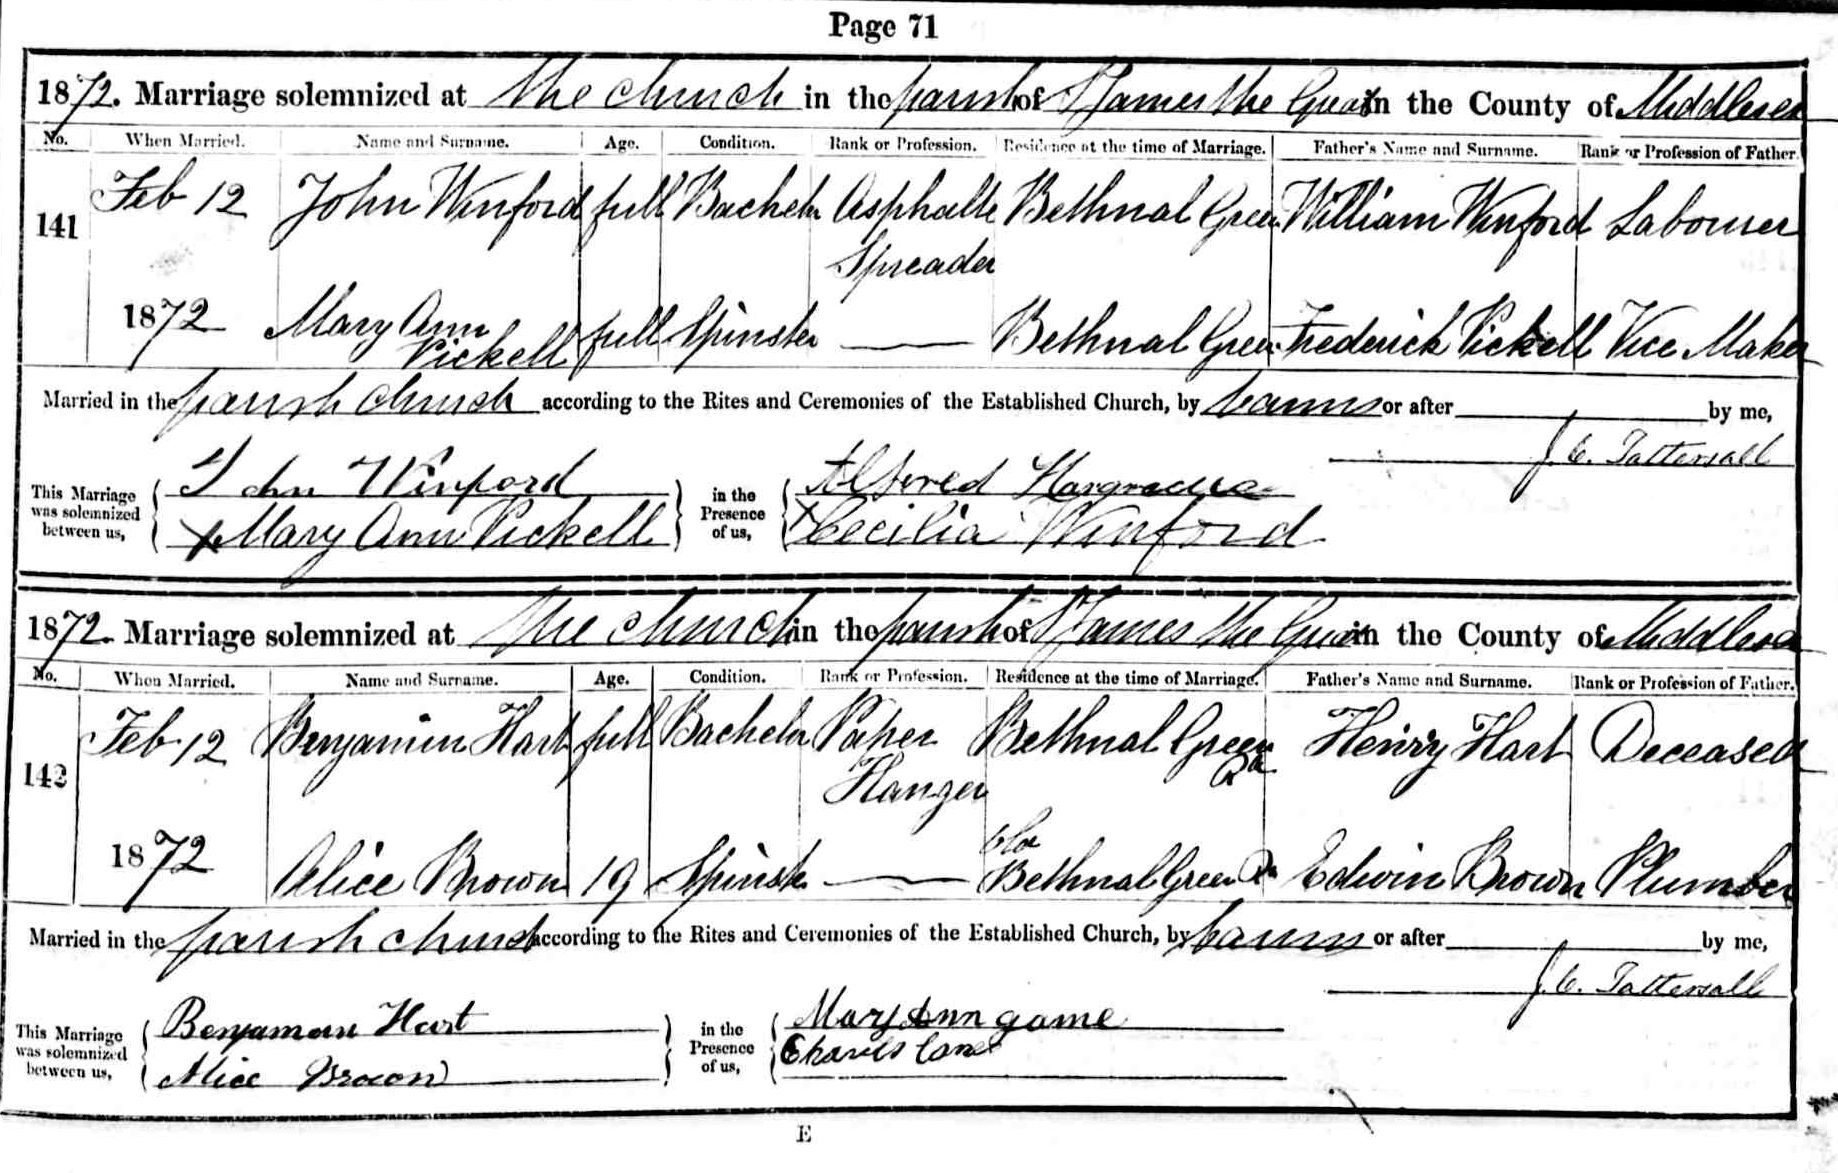 Page 71
1872. Marriage solemnized at The Church in the parish of St James the Great in the County of Middlesex
No. When Married. Name and Surname. Age. Condition. Rank or Profession. Residence at the time of Marriage. Father's Name and Surname. Rank or Profession of Father.
141 Feb 12 John Winford full Bachelor Asphalte Bethnal Green William Winford Labourer
Spreader
1872 Mary Ann full Spinster — Bethnal Green Frederick Pickell Vice Maker
Pickell
Married in the parish church according to the Rites and Ceremonies of the Established Church, by banns or after by me,
J. C. Tattersall
This Marriage was solemnized between us, John Winford in the Presence of us, Alfred Hargreave
X Mary Ann Pickell X Cecilia Winford
1872. Marriage solemnized at The Church in the parish of St James the Great in the County of Middlesex
No. When Married. Name and Surname. Age. Condition. Rank or Profession. Residence at the time of Marriage. Father's Name and Surname. Rank or Profession of Father.
142 Feb 12 Benjamin Hart full Bachelor Paper Bethnal Green Henry Hart Deceased
Hanger Rd
1872 Alice Brown 19 Spinster — Bethnal Green Rd Edwin Brown Plumber
Married in the parish church according to the Rites and Ceremonies of the Established Church, by banns or after by me,
J. C. Tattersall
This Marriage was solemnized between us, Benjaman Hart in the Presence of us, Mary Ann game
Alice Brown Charles Cane
E